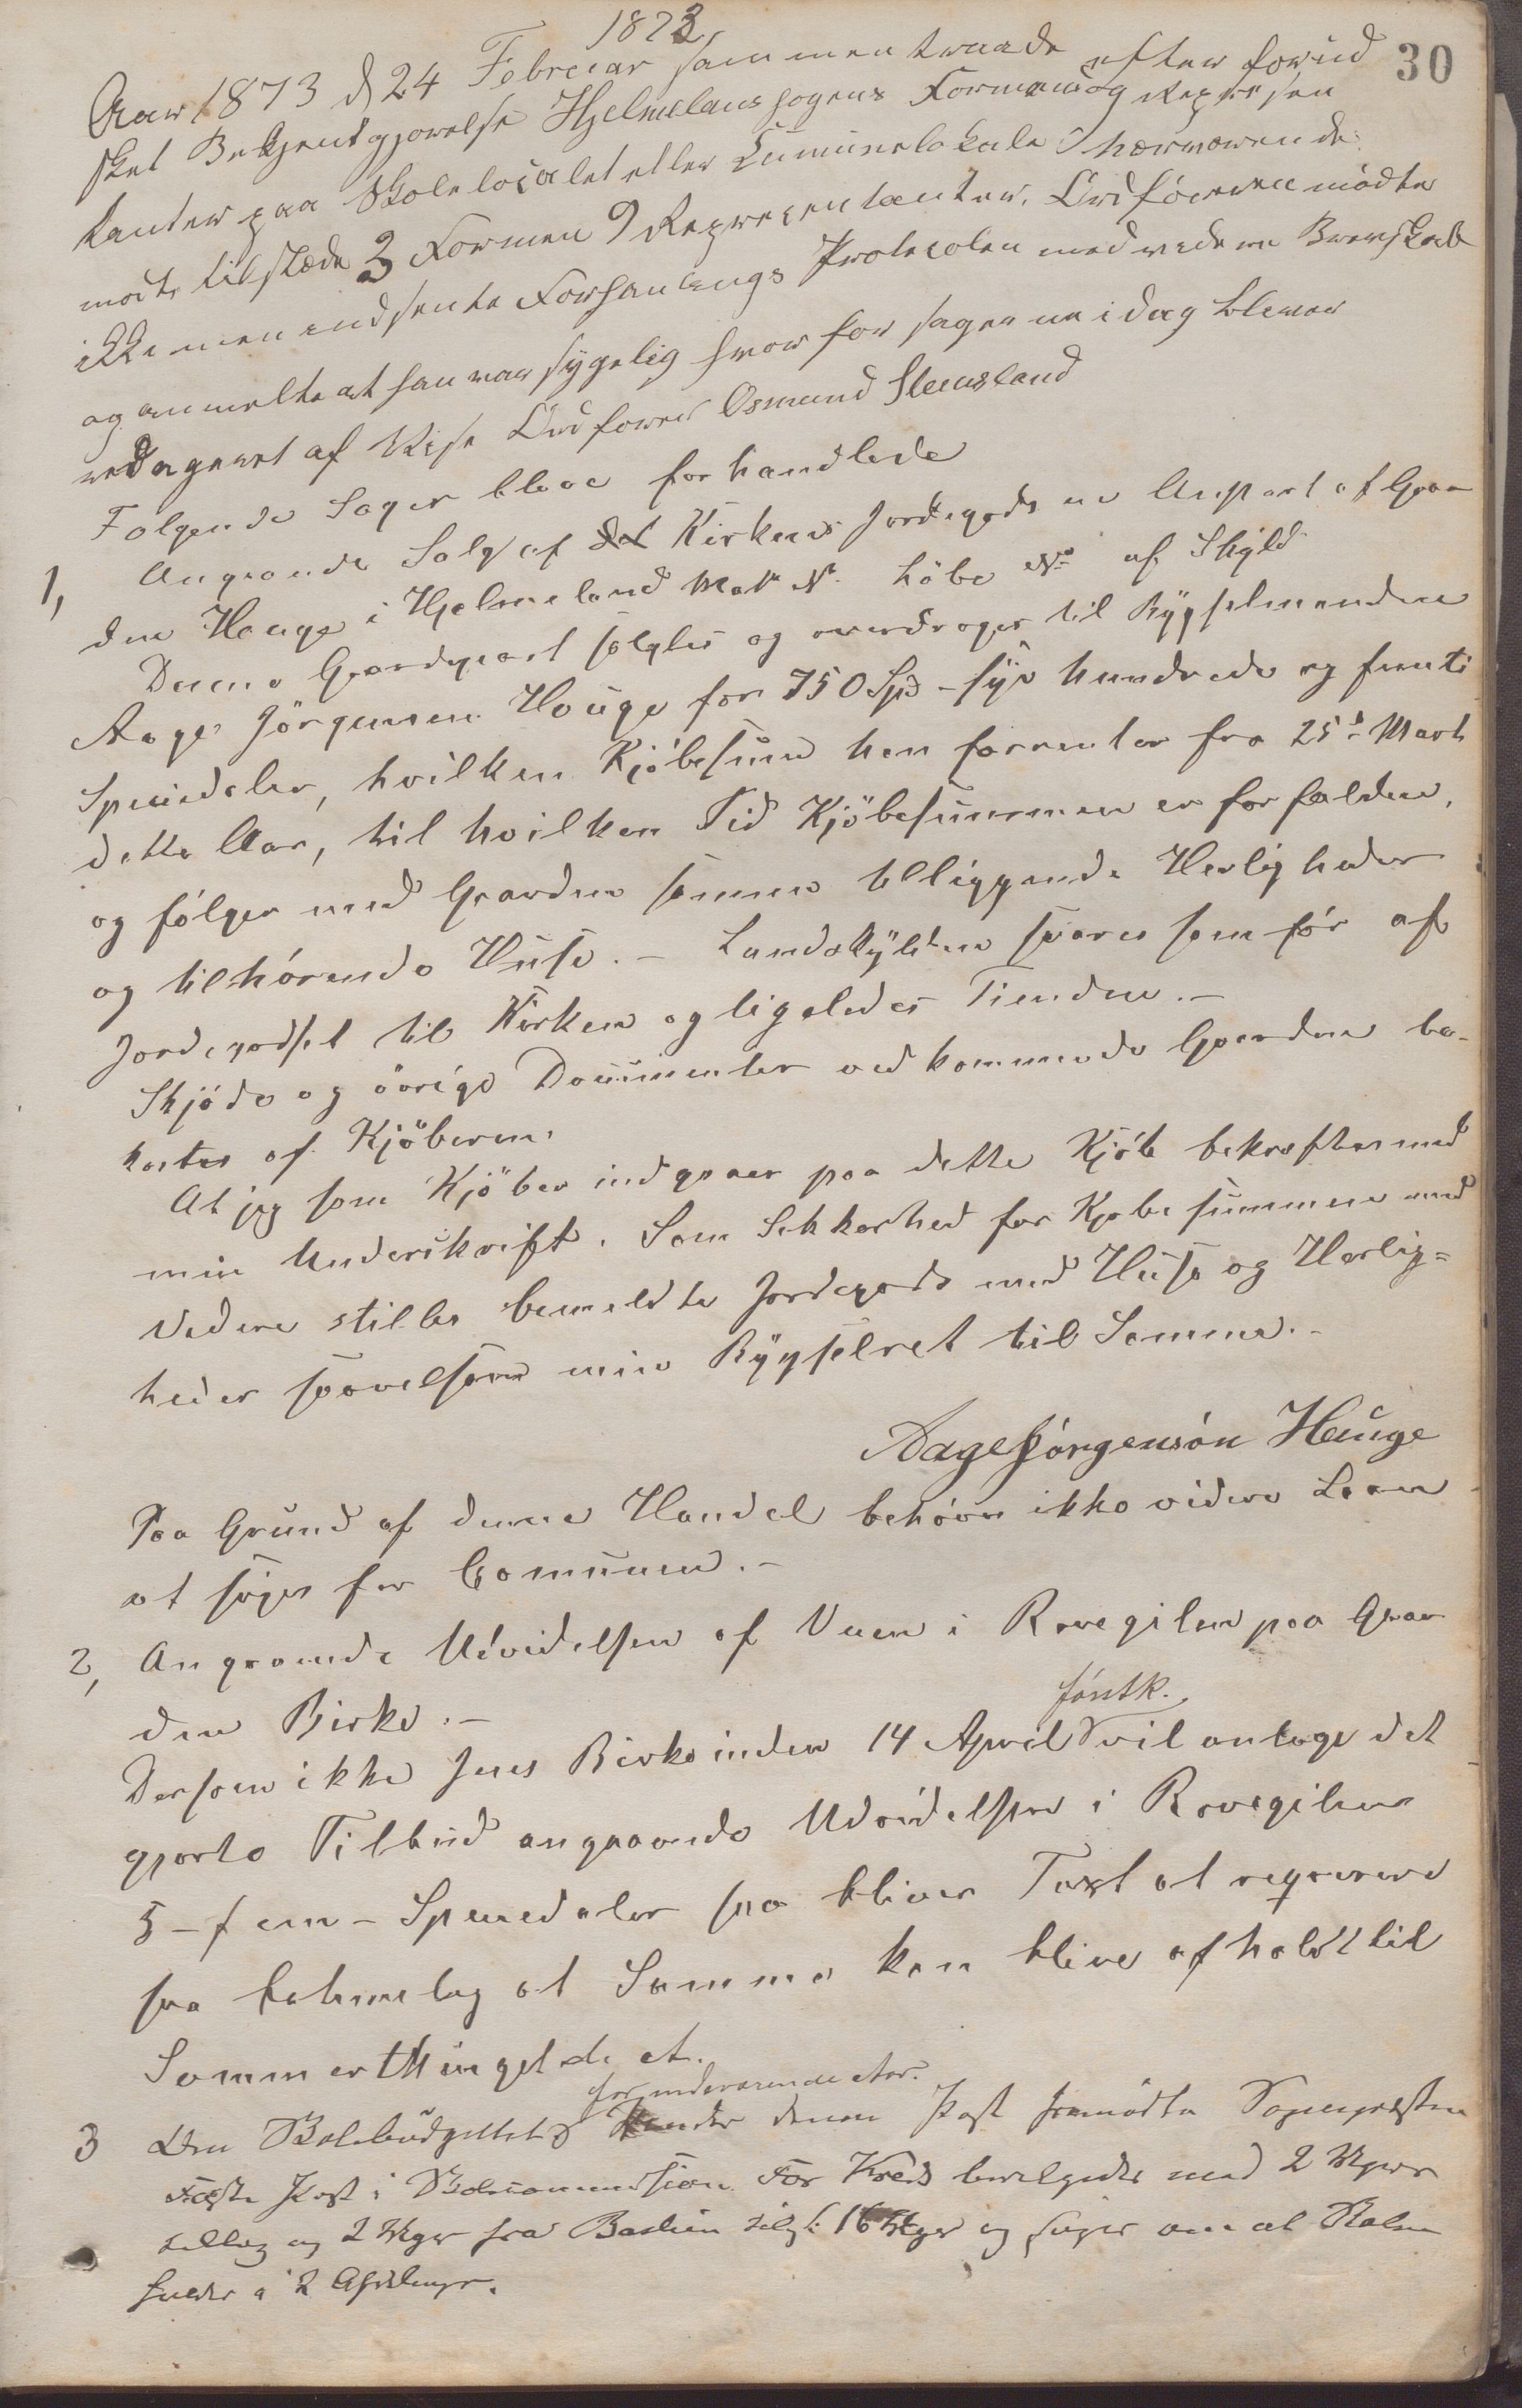 1873
30
Aar 1873 d 24 Februar sammentraade efter forud
sket Bekjentgjørelse Hjelmelanssogens Formend og Represen
tanter paa Skolelocalet eller Cummunelokale nerværende
mødte tilstæde 3 Formen 9 Representanter. Ordføreren mødte
ikke men indsente Forhanlings Protocolen med vedere Brevskab
og anmelte at han var sygelig hvor for sagerne i dag blever
redageret af Vise Ordfører Osmund Steensland
Følgende Sager bleve forhandlede
1, Angaaende Salg af det Kirkens Jordegods en Anpart af Gaar
den Hauge i Hjelmeland Mat № löbe № af Skyld
Denne Gaardpart sælges og overdrages til Bygselmanden
Aage Jörgensen Houge for 750 Spd - syv hundrede og femti
Speciedaler, hvilken Kjöbesum han forrenter fra 25d Marts
dette Aar, til hvilken Tid Kjöbesummen er forfalden,
og fölger med Gaarden samme tilliggende Herligheder
og tilhörende Huse. - Landskylden svares som för af
Jordegodset til Kirken og ligeledes Tienden. -
Skjöde og övrige Documenter vedkommende Gaarden be-
kostes af Kjöberen.
At jeg som Kjöber indgaaer paa dette Kjöb bekræftes med
min Underskrift. Som Sikkerhed for Kjøbesummen med
Videre stilles bemeldte Jordegods med Huse og Herlig=
heder saavelsom min Bygselret til Samme. -
Aage Jörgensön Hauge
Paa Grund af denne Handel behöves ikke videre Laan
at söges for Comunen. -
2, Angaaende Udvidelsen af Veien i Rovegilen paa Gaar
den Birke. -
förstk.
Dersom ikke Jens Birke inden 14 April vil antage det
gjorte Tilbud angaaende Udvidelsen i Rovegilen
5 - fem - Speciedaler saa bliver Taxt at reqvirere
saa betimelig at Samme kan blive afholdt til
Sommerthinget d. A.
for inderværende Aar.
3 Skolebudgettet Under denne Post fremödte Sognepresten
Post i Skolecommission For Kreds bevilgedes med 2 Uger
tillæg og 2 Uger fra 16 Uger og at Skolen
2